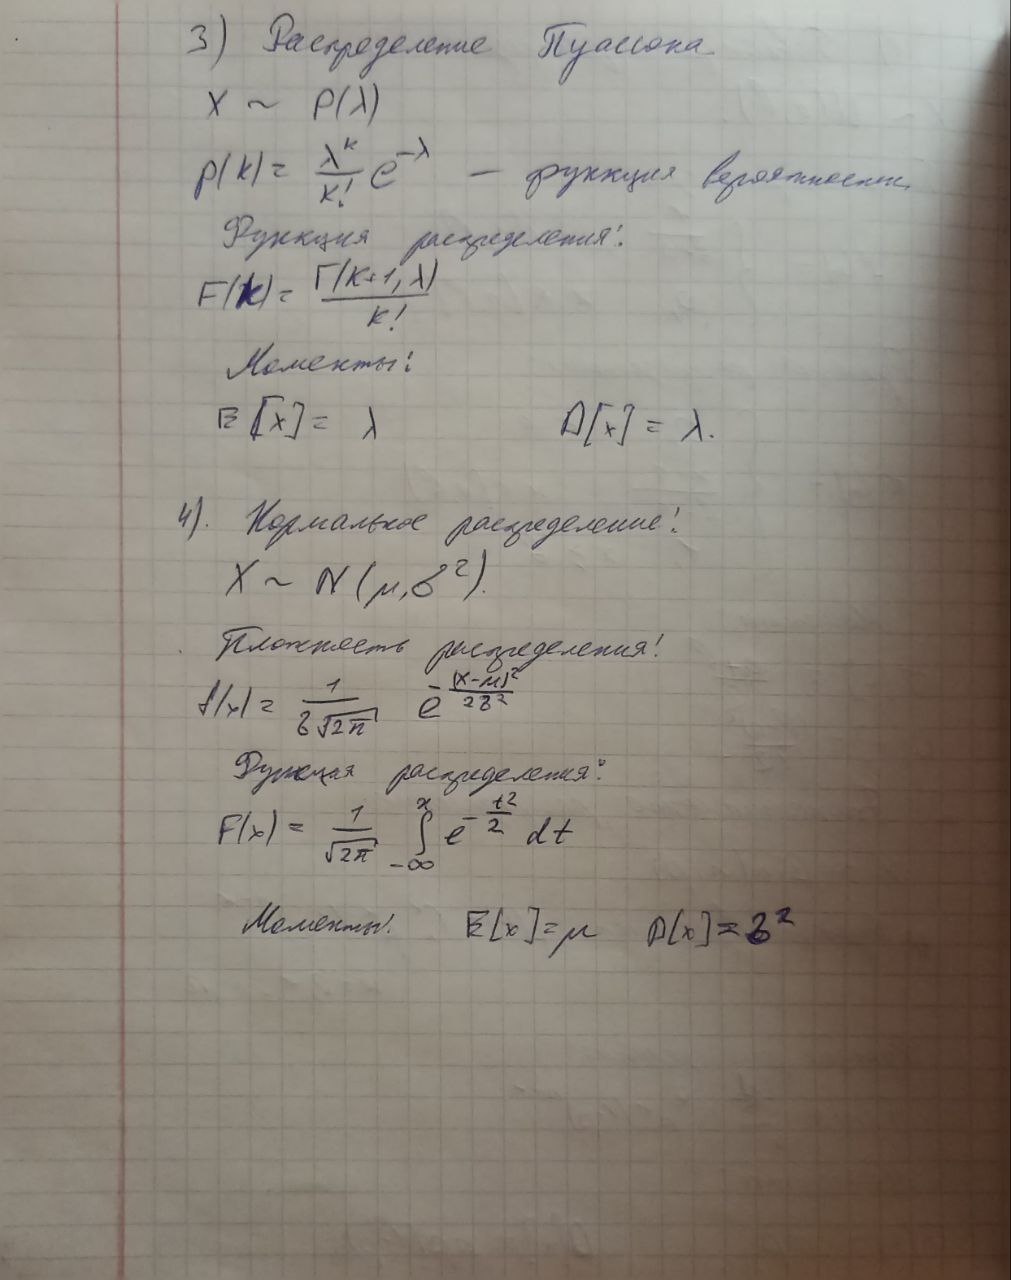 3) Распределение Пуассона
X ~ P(λ)
p(k) = λ^k/k! e^{-λ} — функция вероятности.
Функция распределения:
F(k) = Γ(k+1, λ)/k!
Моменты:
E[x] = λ D[x] = λ.
4). Нормальное распределение:
X ~ N(μ, σ²).
Плотность распределения:
f(x) = 1/(σ√(2π)) e^{-(x-μ)²/(2σ²)}
Функция распределения:
F(x) = 1/√(2π) ∫_{-∞}^{x} e^{-t²/2} dt
Моменты: E[x] = μ D[x] = σ²